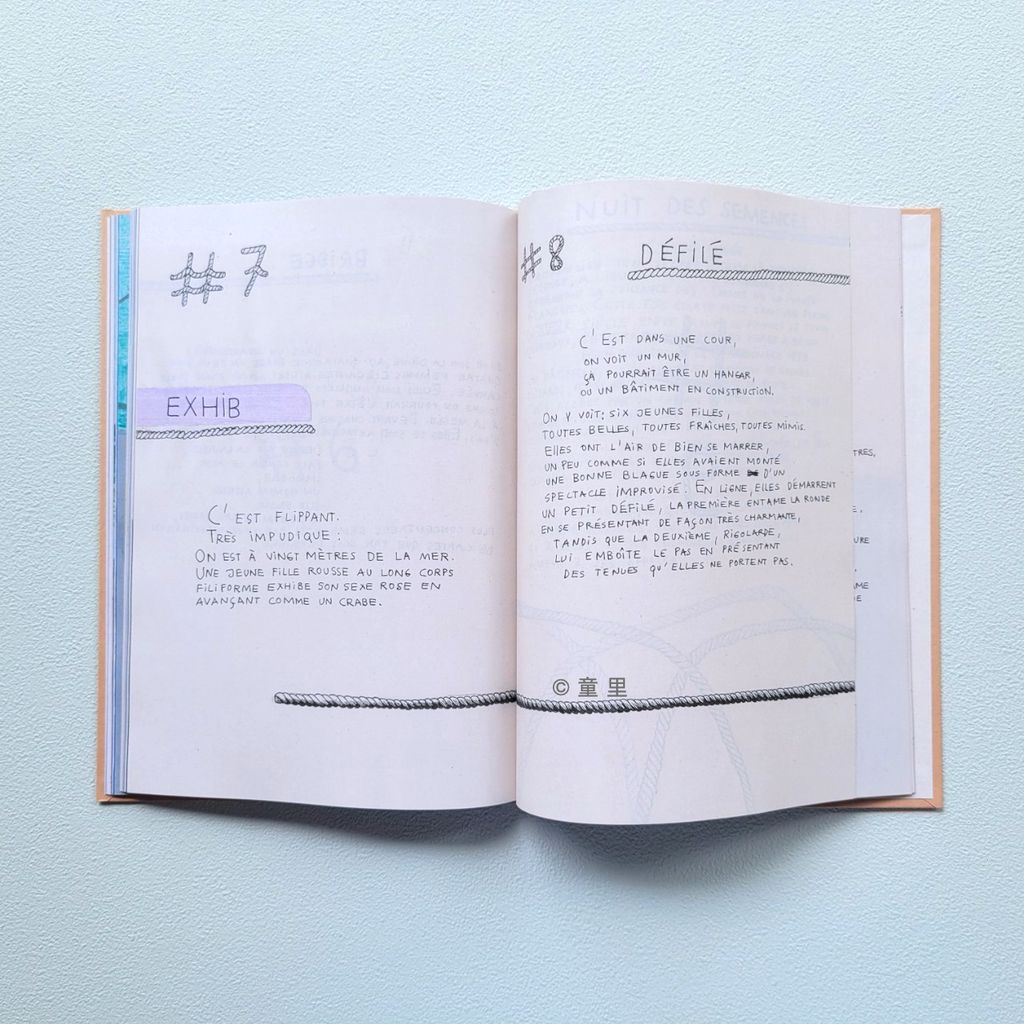 #7
EXHIB
C'EST FLIPPANT.
TRÈS IMPUDIQUE :
ON EST À VINGT MÈTRES DE LA MER.
UNE JEUNE FILLE ROUSSE AU LONG CORPS
FILIFORME EXHIBE SON SEXE ROSE EN
AVANÇANT COMME UN CRABE.
NUIT DES SEMENCES
#8 DÉFILÉ
C'EST DANS UNE COUR,
ON VOIT UN MUR,
ÇA POURRAIT ÊTRE UN HANGAR,
OU UN BÂTIMENT EN CONSTRUCTION.
ON Y VOIT; SIX JEUNES FILLES,
TOUTES BELLES, TOUTES FRAÎCHES, TOUTES MIMIS.
ELLES ONT L'AIR DE BIEN SE MARRER,
UN PEU COMME SI ELLES AVAIENT MONTÉ
UNE BONNE BLAGUE SOUS FORME D'UN
SPECTACLE IMPROVISÉ. EN LIGNE, ELLES DÉMARRENT
UN PETIT DÉFILÉ, LA PREMIÈRE ENTAME LA RONDE
EN SE PRÉSENTANT DE FAÇON TRÈS CHARMANTE,
TANDIS QUE LA DEUXIÈME, RIGOLARDE,
LUI EMBOÎTE LE PAS EN PRÉSENTANT
DES TENUES QU'ELLES NE PORTENT PAS.
TRES,
URE
ME
E
© 童里